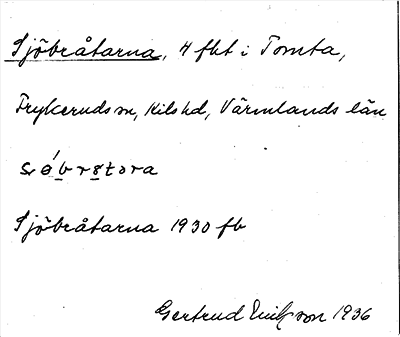 Sjöbråtarna, 4 fbt i Tomta,
Frykeruds sn, Kils hd, Värmlands län
Sjöbråtarna 1930 fb
Gertrud Erikson 1936